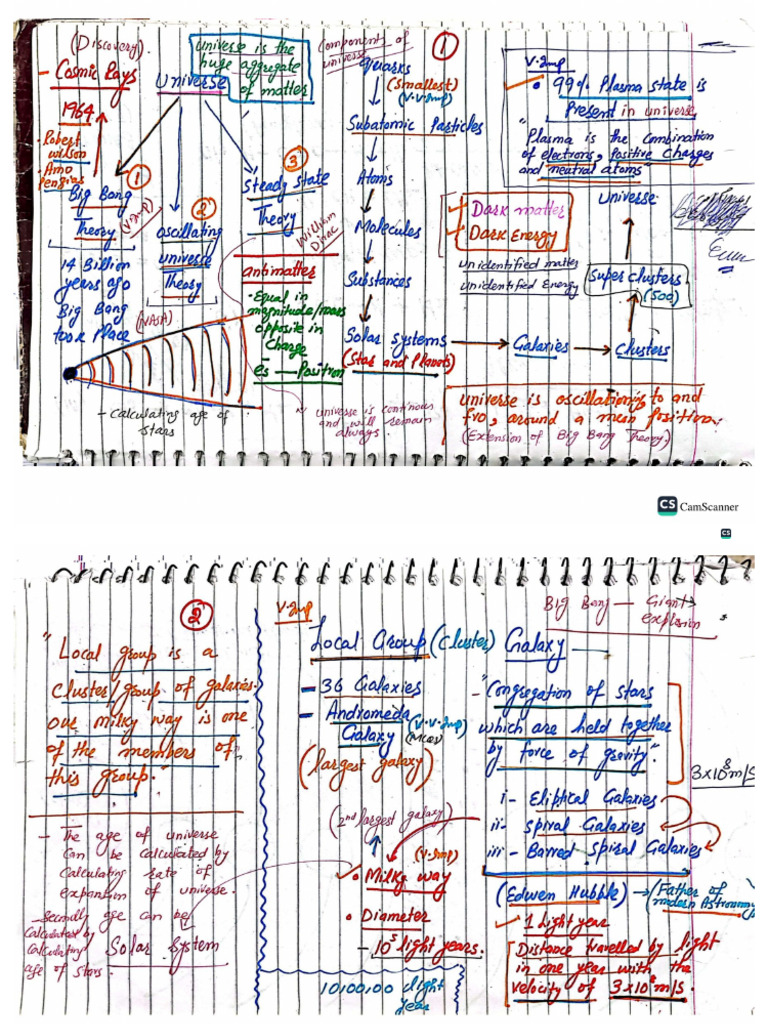 (Discovery).
- Cosmic Rays
1964
· Robert
wilson
· Arno
Penzias
universe is the
huge aggregate
of matter
universe
Big Bang
Theory
①
(V·Imp)
14 Billion
years ago
Big Bang
took place
(NASA)
②
oscillating
universe
Theory
③
Steady State
Theory
William
antimatter
· Equal in
magnitude/mass
opposite in
Charge
es — Positron
- Calculating age of
stars
~ universe is continous
and will remain
always.
Component of
universe
①
Quarks
(Smallest)
(V.V.Imp)
Subatomic Particles
Atoms
Molecules
Substances
Solar systems
(Star and Planets)
Galaxies
Clusters
(500)
Super Clusters
universe
V·Imp
• 99% Plasma state is
Present in universe
"Plasma is the combination
of electrons, Positive Charges
and neutral atoms"
Dark matter
Dark Energy
unidentified matter
unidentified Energy
universe is oscillationing to and
fro, around a mean position.
(Extension of Big Bang Theory)
CS CamScanner
CS
②
"Local group is a
cluster/group of galaxies.
our milky way is one
of the members of
this group."
- The age of universe
can be calculated by
calculating rate of
expansion of universe.
Secondly age can be
calculated by
calculating
age of stars.
Solar System
V·Imp
Local Group (Cluster)
- 36 Galaxies
- Andromeda
Galaxy (V.V.Imp)
(MCQs)
(largest galaxy)
(2nd largest galaxy)
(V.Imp)
• Milky way
• Diameter
- 10⁵ light years.
10,00,00 light
year
Big Bang — Giant
explosion
Galaxy —
"Congregation of stars
which are held together
by force of gravity".
3×10⁸m/s
i- Eliptical Galaxies
ii- Spiral Galaxies
iii- Barred Spiral Galaxies
(Edwen Hubble) → (Father of
modern Astronomy
1 Light year
Distance travelled by light
in one year with the
velocity of 3×10⁸m/s.